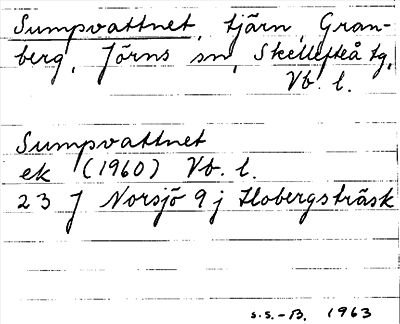 Sumpvattnet, tjärn, Gran-
berg, Jörns sn, Skellefteå tg,
Vb. l.
Sumpvattnet
ek (1960) Vb. l.
23 J Norsjö 9 j Hobergsträsk
S.S.-B. 1963